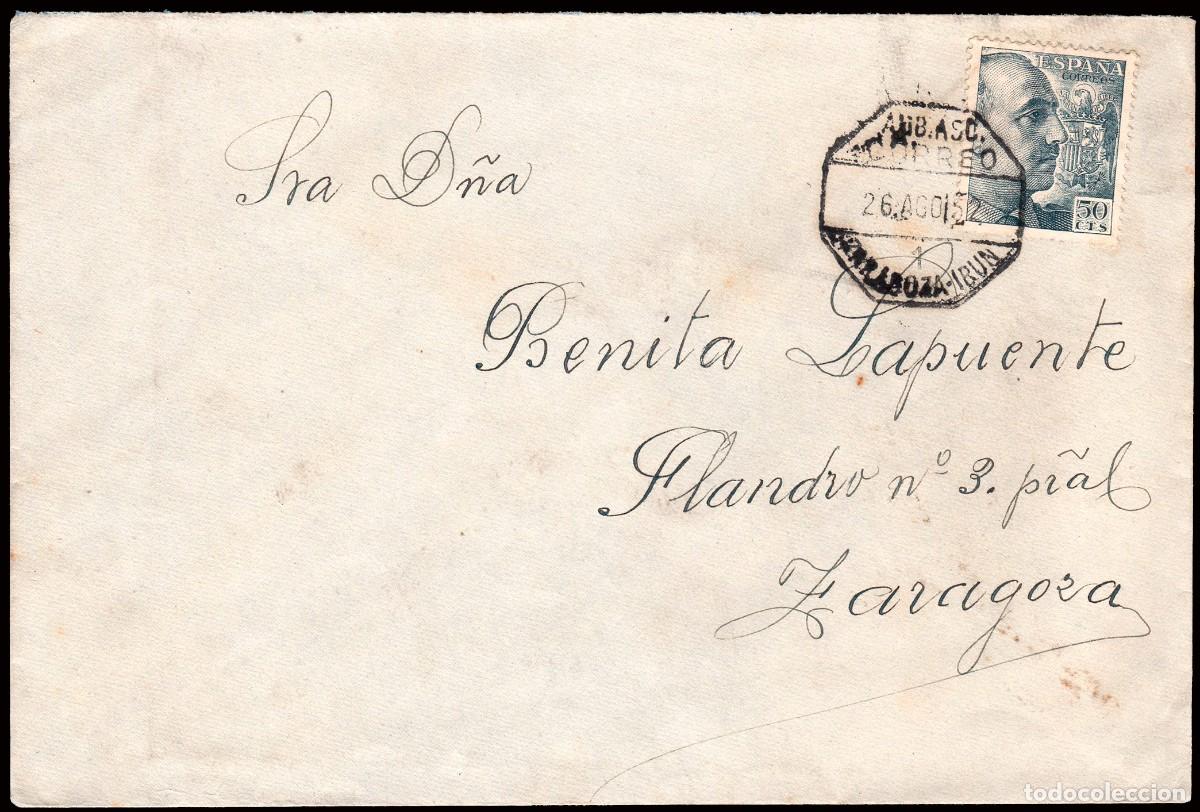 ESPAÑA
CORREOS
50
CTS
AMB.ASC.
CORREO
26.AGO.52
1
ZARAGOZA-IRUN
Sra Dña
Benita Lapuente
Flandro nº 3. pñal
Zaragoza
todocoleccion